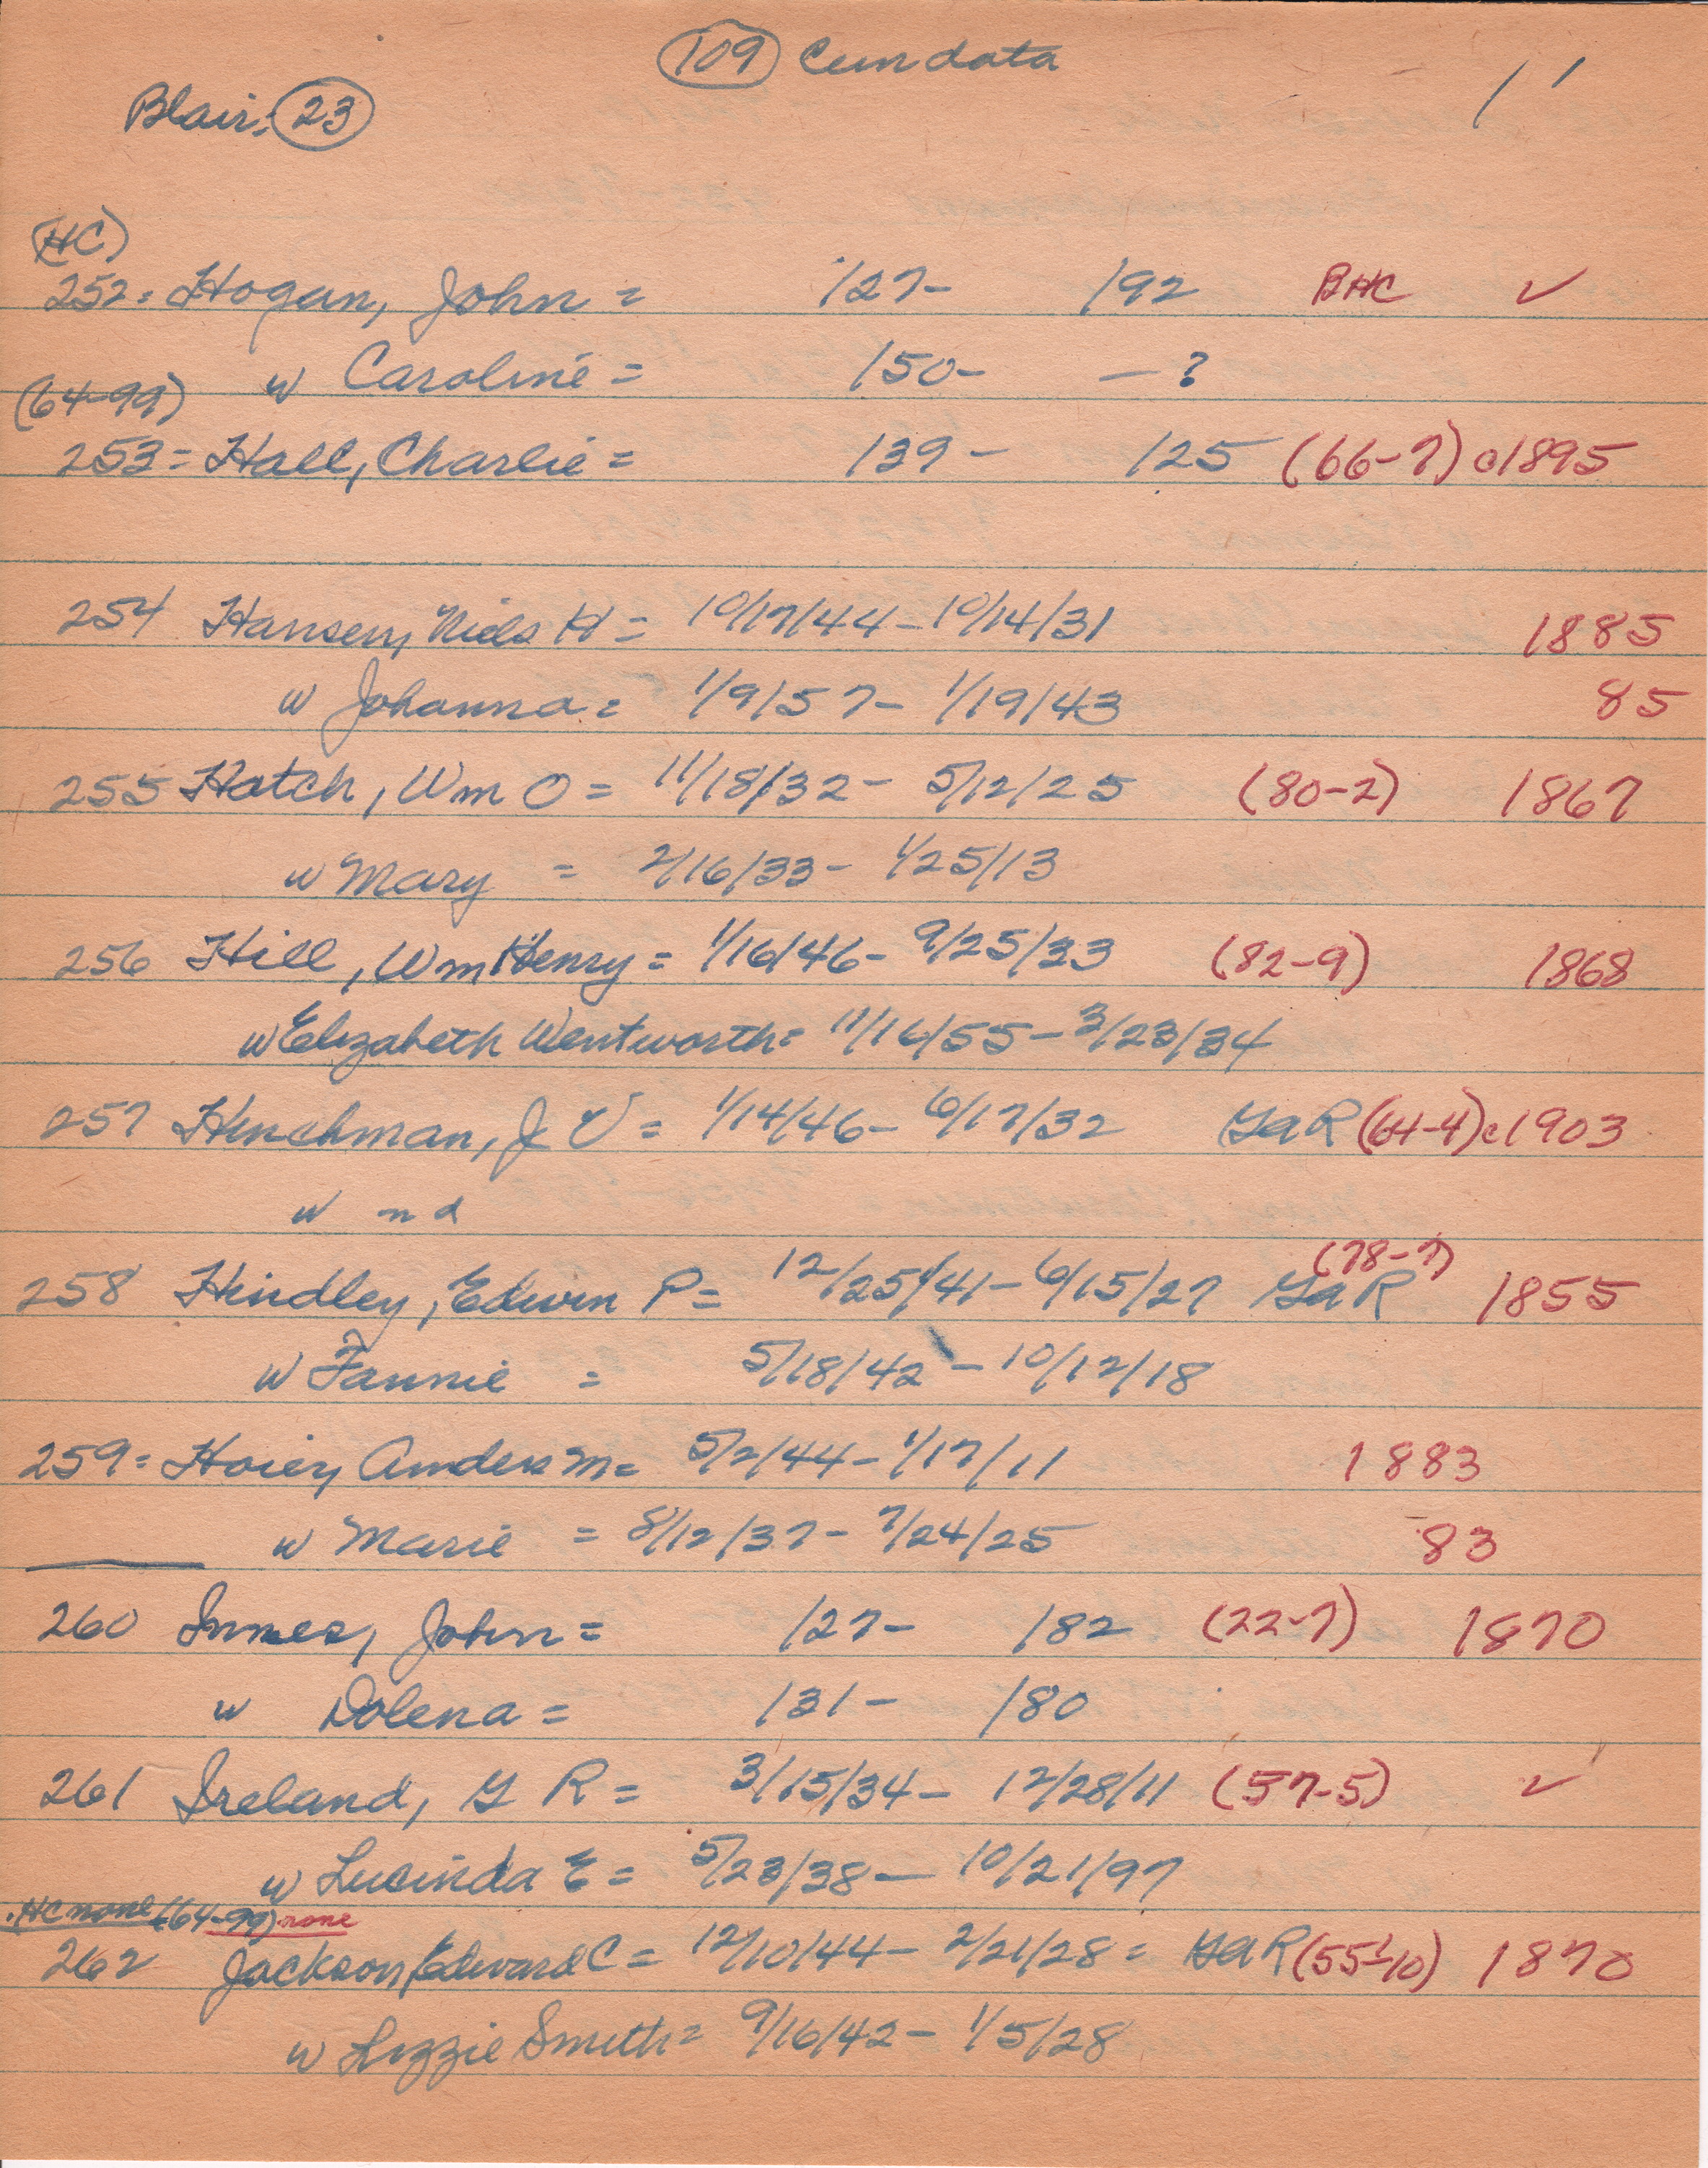 109 Cem data
/ '
Blair: 23
(HC)
252 = Hogan, John = /27- /92 BHC ✓
w Caroline = /50- - ?
(64-99)
253 = Hall, Charlie = /39 - /25 (66-7) c1895
254 Hansen, Niels H = 10/17/44 - 10/14/31 1885
w Johanna = 1/9/57 - 1/19/43 85
255 Hatch, Wm O = 11/18/32 - 5/12/25 (80-2) 1867
w Mary = 2/16/33 - 1/25/13
256 Hill, Wm Henry = 1/16/46 - 9/25/33 (82-9) 1868
w Elizabeth Wentworth = 11/16/55 - 3/23/34
257 Hinchman, J V = 1/14/46 - 6/17/32 GaR (64-4) c1903
w nd
(78-7)
258 Hindley, Edwin P = 12/25/41 - 6/15/27 GaR 1855
w Fannie = 5/18/42 - 10/12/18
259 = Hoier, Anders M = 5/2/44 - 1/17/11 1883
w Marie = 8/12/37 - 7/24/25 83
260 Innes, John = /27- /82 (22-7) 1870
w Dolena = /31- /80
261 Ireland, G R = 3/15/34 - 12/28/11 (57-5) ✓
w Lucinda E = 5/23/38 - 10/21/97
HC none (64-99) none
262 Jackson, Edward C = 12/10/44 - 2/21/28 = GaR (55-10) 1870
w Lizzie Smith = 9/16/42 - 1/5/28